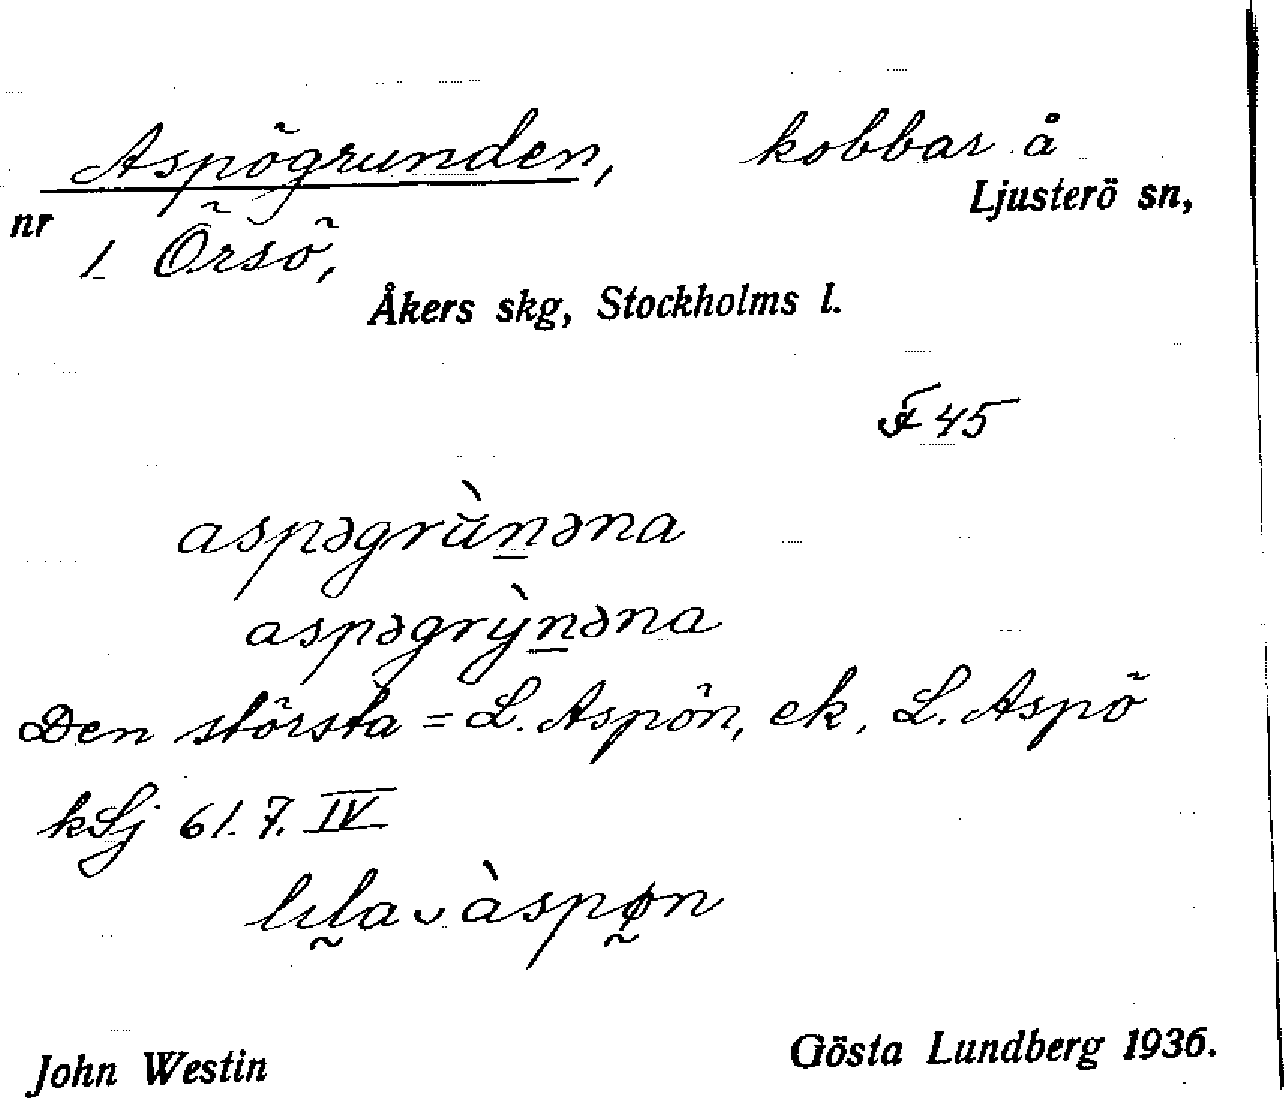 Aspögrunden, kobbar å
Ljusterö sn,
nr 1 Örsö,
Åkers skg, Stockholms l.
F 45
aspəgrù̈n̲əna
aspəgrỳn̲əna
Den största = L. Aspön, ek. L. Aspö
kLj 61.7.IV
lıl̰a ᴗ àspø̰n
John Westin
Gösta Lundberg 1936.